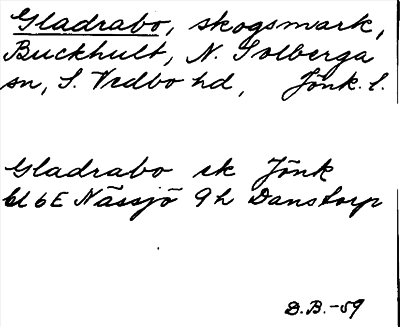 Gladrabo, skogsmark,
Buckhult, N. Solberga
sn, S. Vedbo hd, Jönk. l.
Gladrabo sk Jönk
bl 6E Nässjö 9h Danstorp
D.B.-59